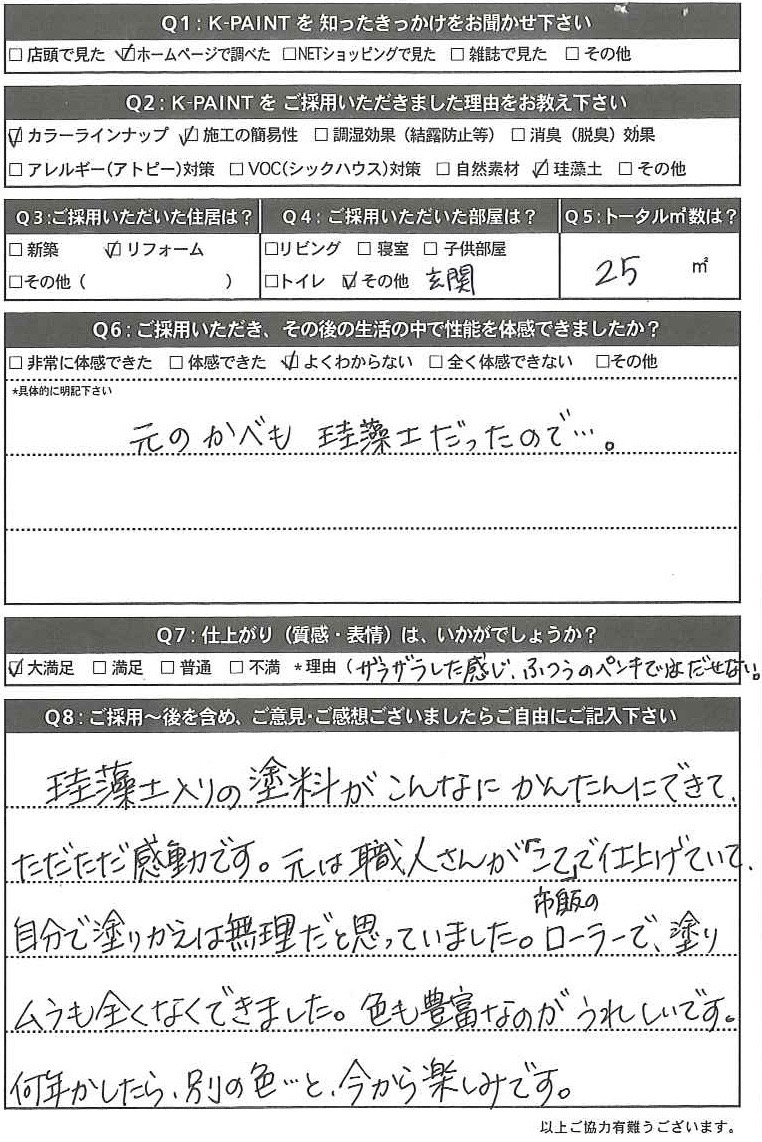 Q1：K-PAINTを 知ったきっかけをお聞かせ下さい
□ 店頭で見た ☑ホームページで調べた □NETショッピングで見た □ 雑誌で見た □ その他
Q2：K-PAINTを ご採用いただきました理由をお教え下さい
☑ カラーラインナップ ☑ 施工の簡易性 □ 調湿効果（結露防止等） □ 消臭（脱臭）効果
□ アレルギー(アトピー)対策 □ VOC(シックハウス)対策 □ 自然素材 ☑ 珪藻土 □ その他
Q3:ご採用いただいた住居は？ Q4：ご採用いただいた部屋は？ Q5:トータル㎡数は？
□ 新築 ☑ リフォーム □リビング □ 寝室 □ 子供部屋
25 ㎡
□その他（ ） □トイレ ☑ その他 玄関
Q6：ご採用いただき、その後の生活の中で性能を体感できましたか？
□ 非常に体感できた □ 体感できた ☑ よくわからない □ 全く体感できない □その他
*具体的に明記下さい
元のかべも 珪藻土だったので…。
Q7：仕上がり（質感・表情）は、いかがでしょうか？
☑ 大満足 □ 満足 □ 普通 □ 不満 *理由（ザラザラした感じ、ふつうのペンキではだせない。
Q8：ご採用～後を含め、ご意見・ご感想ございましたらご自由にご記入下さい
珪藻土入りの塗料がこんなにかんたんにできて、
ただただ感動です。元は職人さんが「こて」で仕上げていて、
自分で塗りかえは無理だと思っていました。市販のローラーで、塗り
ムラも全くなくできました。色も豊富なのがうれしいです。
何年かしたら、別の色…と、今から楽しみです。
以上ご協力有難うございます。